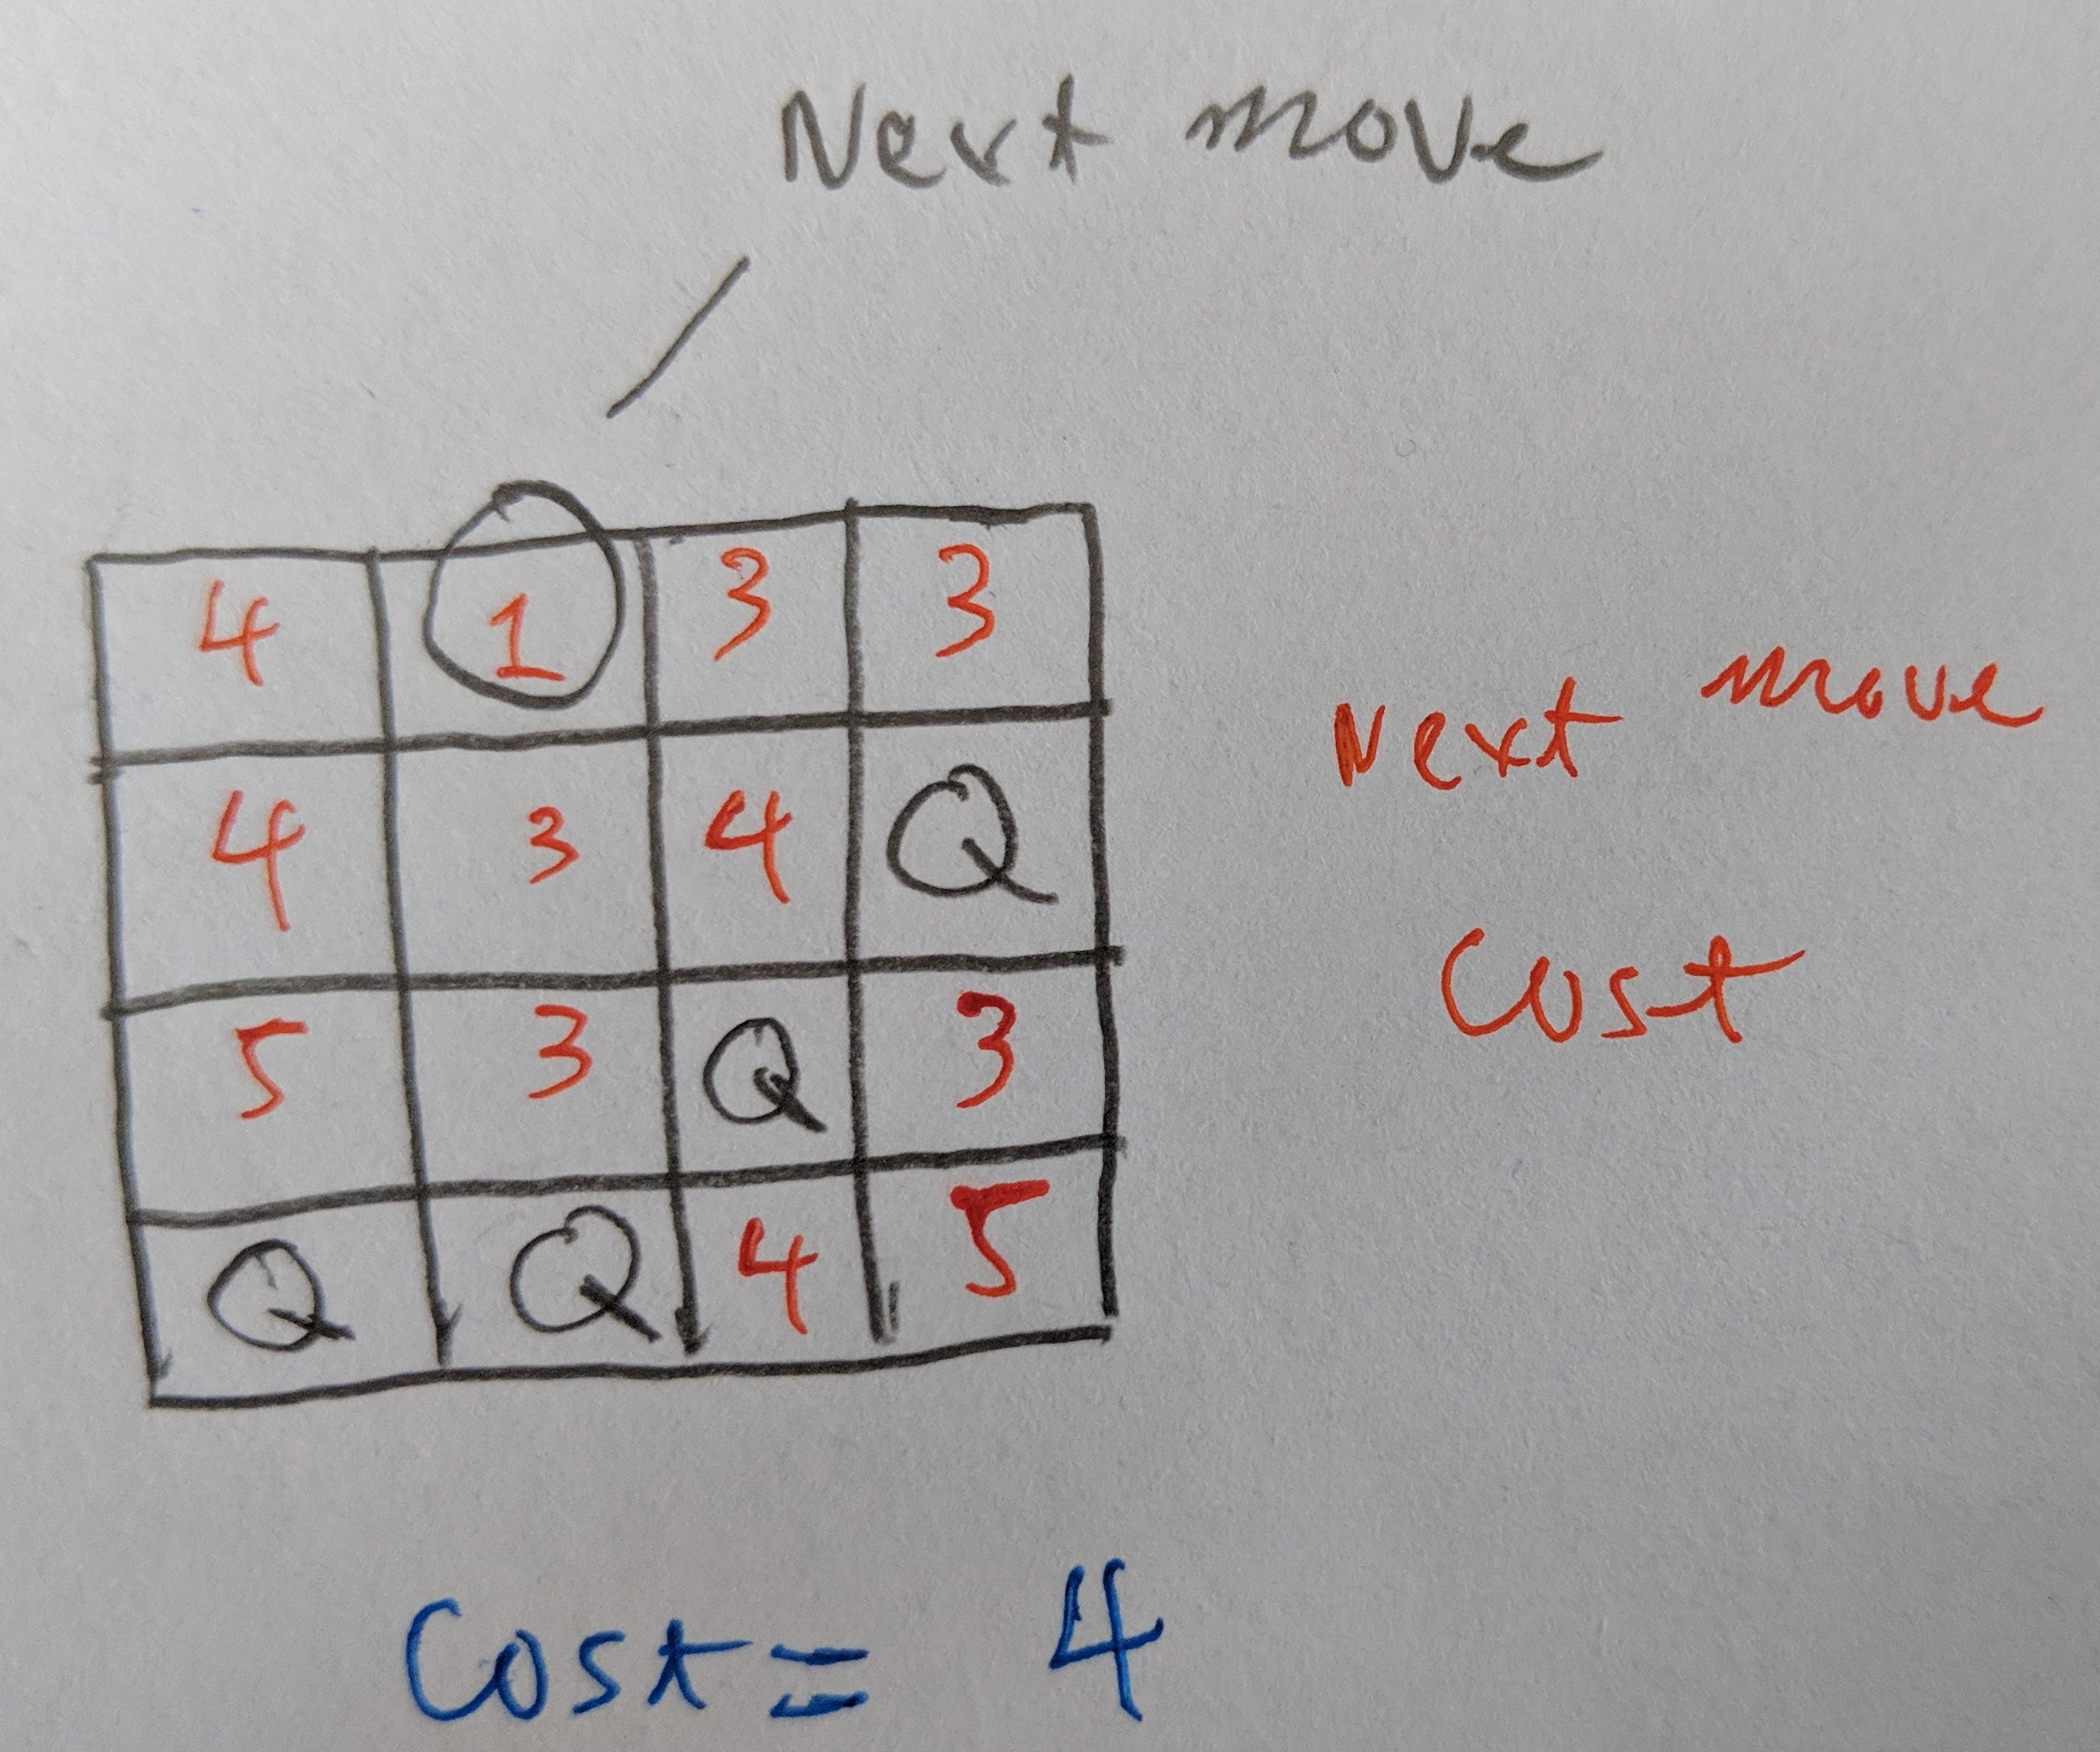 Next move
4 1 3 3
4 3 4 Q
5 3 Q 3
Q Q 4 5
Next move
Cost
Cost = 4